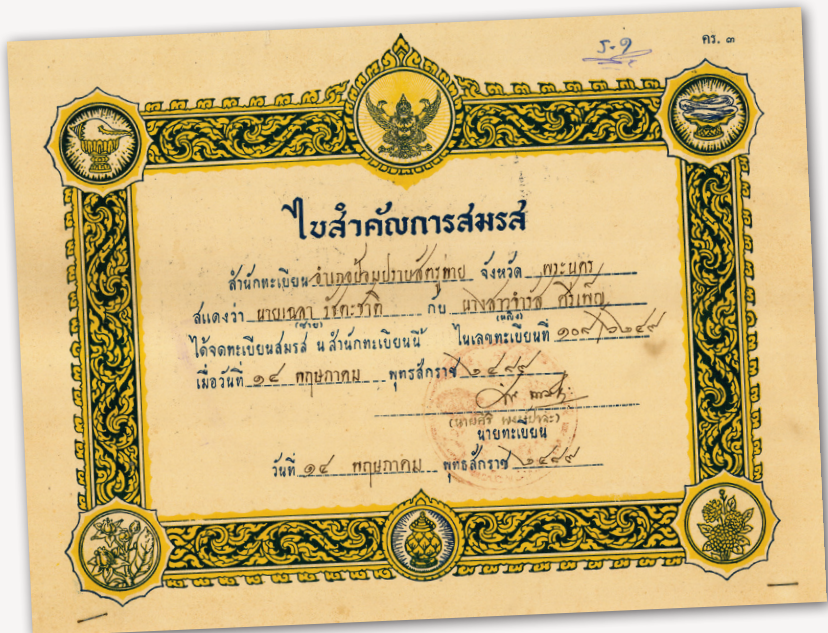 คร. ๓
ใบสำคัญการสมรส
สำนักทะเบียน อำเภอป้อมปราบศัตรูพ่าย จังหวัด พระนคร
สแดงว่า นายเฉลา รัชตะชาติ กับ นางสาวจำรัส ศิริเพ็ญ
(ชาย) (หญิง)
ได้จดทะเบียนสมรส ณ สำนักทะเบียนนี้ ในเลขทะเบียนที่
เมื่อวันที่ ๑๔ พฤษภาคม พุทธสักราช ๒๔๘๙
นายทะเบียน
วันที่ ๑๔ พฤษภาคม พุทธสักราช ๒๔๘๙